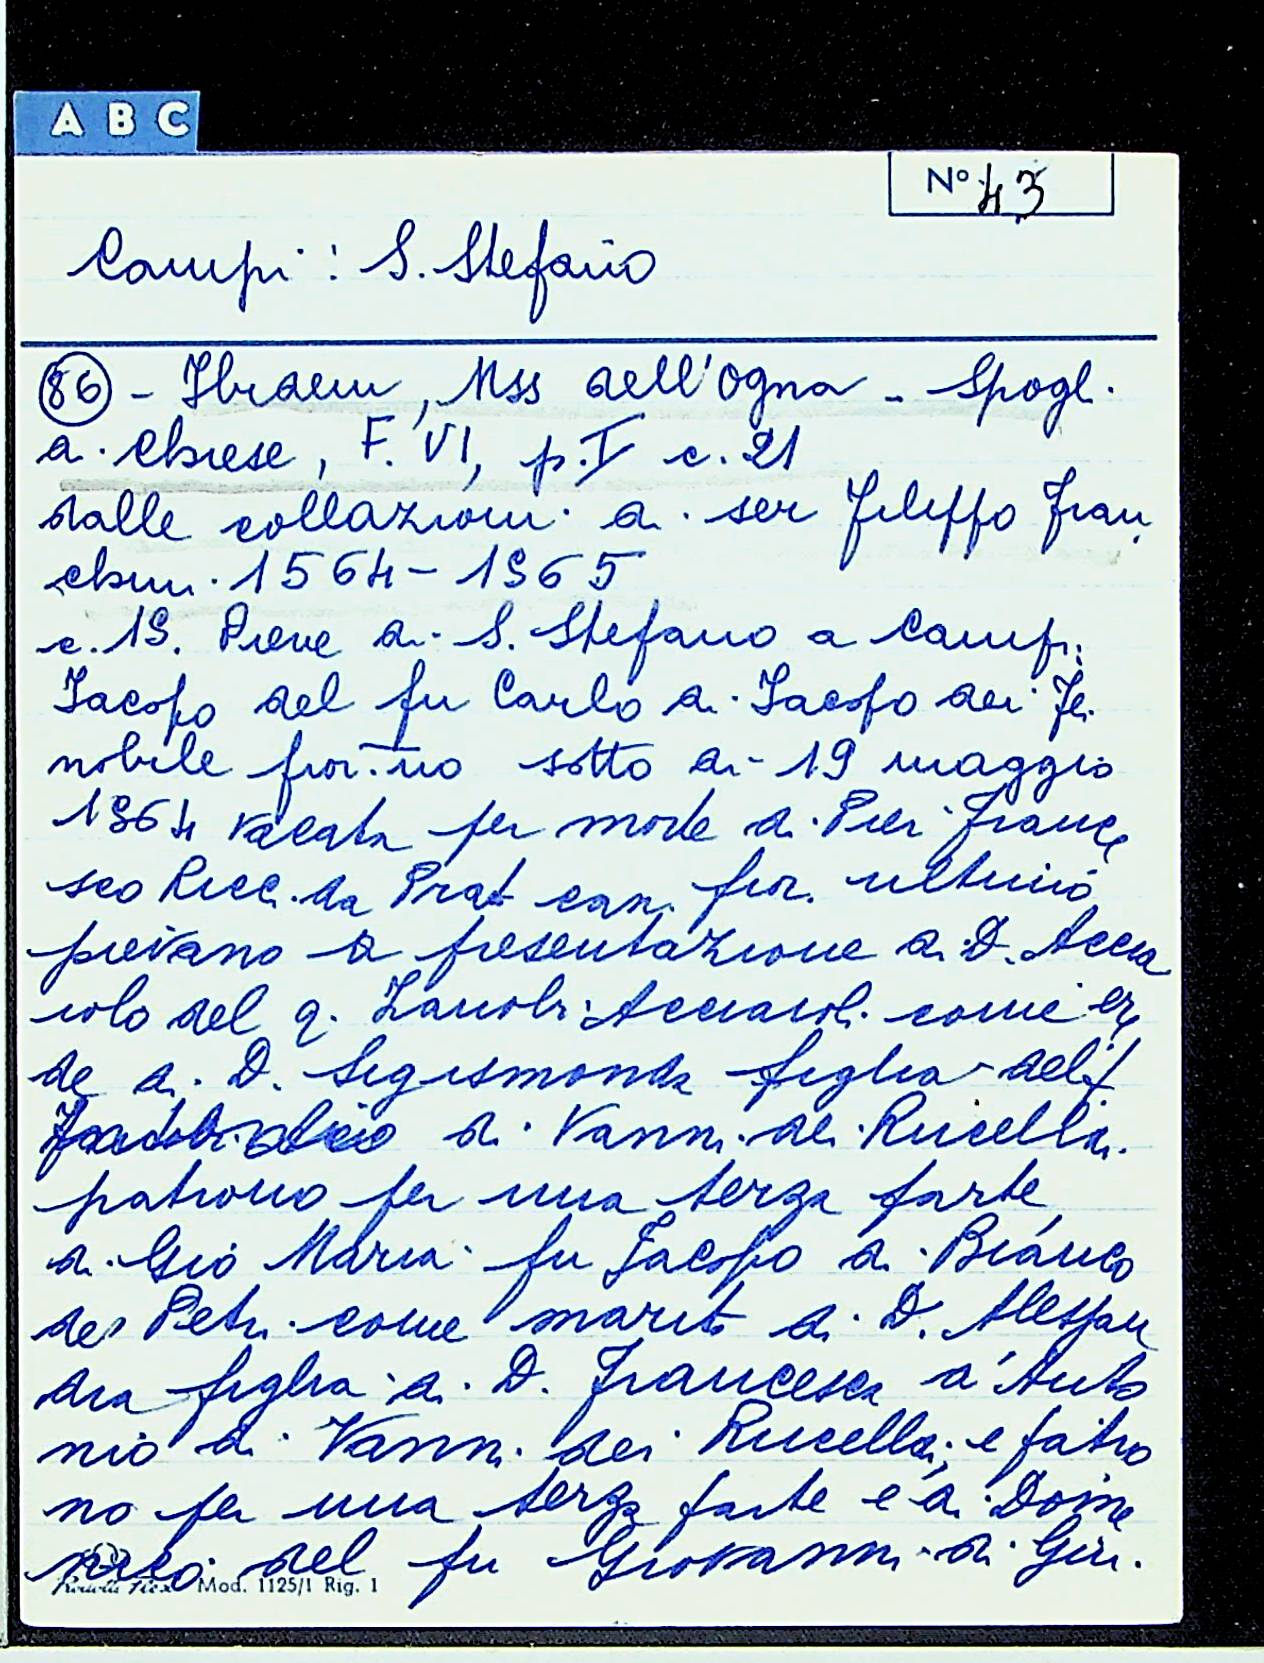 A B C
N° 43
Campi: S. Stefano
86 - Ibidem, Mss dell'Ogna - Spogl.
di chiese, F. VI, p. I c. 21
dalle collazioni di ser Filippo Fran
chini 1564-1565
c. 19. Pieve di S. Stefano a Campi:
Iacopo del fu Carlo di Iacopo dei
nobile fior.no sotto di 19 maggio
1564 vacata per morte di Pier France
sco Ricci da Prato can. fior. ultimo
pievano a presentazione di D. Accia
iolo del q. Zanobi Acciaioli come ere
de di D. Sigismonda figlia del f
di Vanni dei Rucellai
patrono per una terza parte
di Gio Maria fu Jacopo di Bianco
dei Petri come marito di D. Alessan
dra figlia di D. Francesca d'Anto
nio di Vanni dei Rucellai, e patro
no per una terza parte e di Dome
nico del fu Giovanni di
Mod. 1125/1 Rig. 1